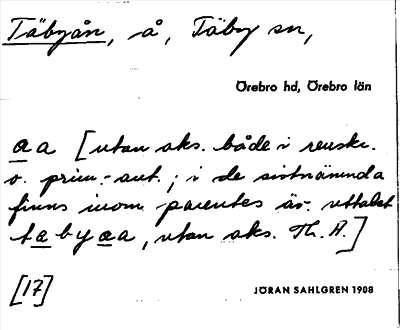 Täbyån, å, Täby sn,
Örebro hd, Örebro län
a a [utan aks. både i renskr.
o. prim.-ant.; i de sistnämnda
finns inom parentes äv. uttalet
t a b y a a, utan aks. Th. A.]
[17]
JÖRAN SAHLGREN 1908